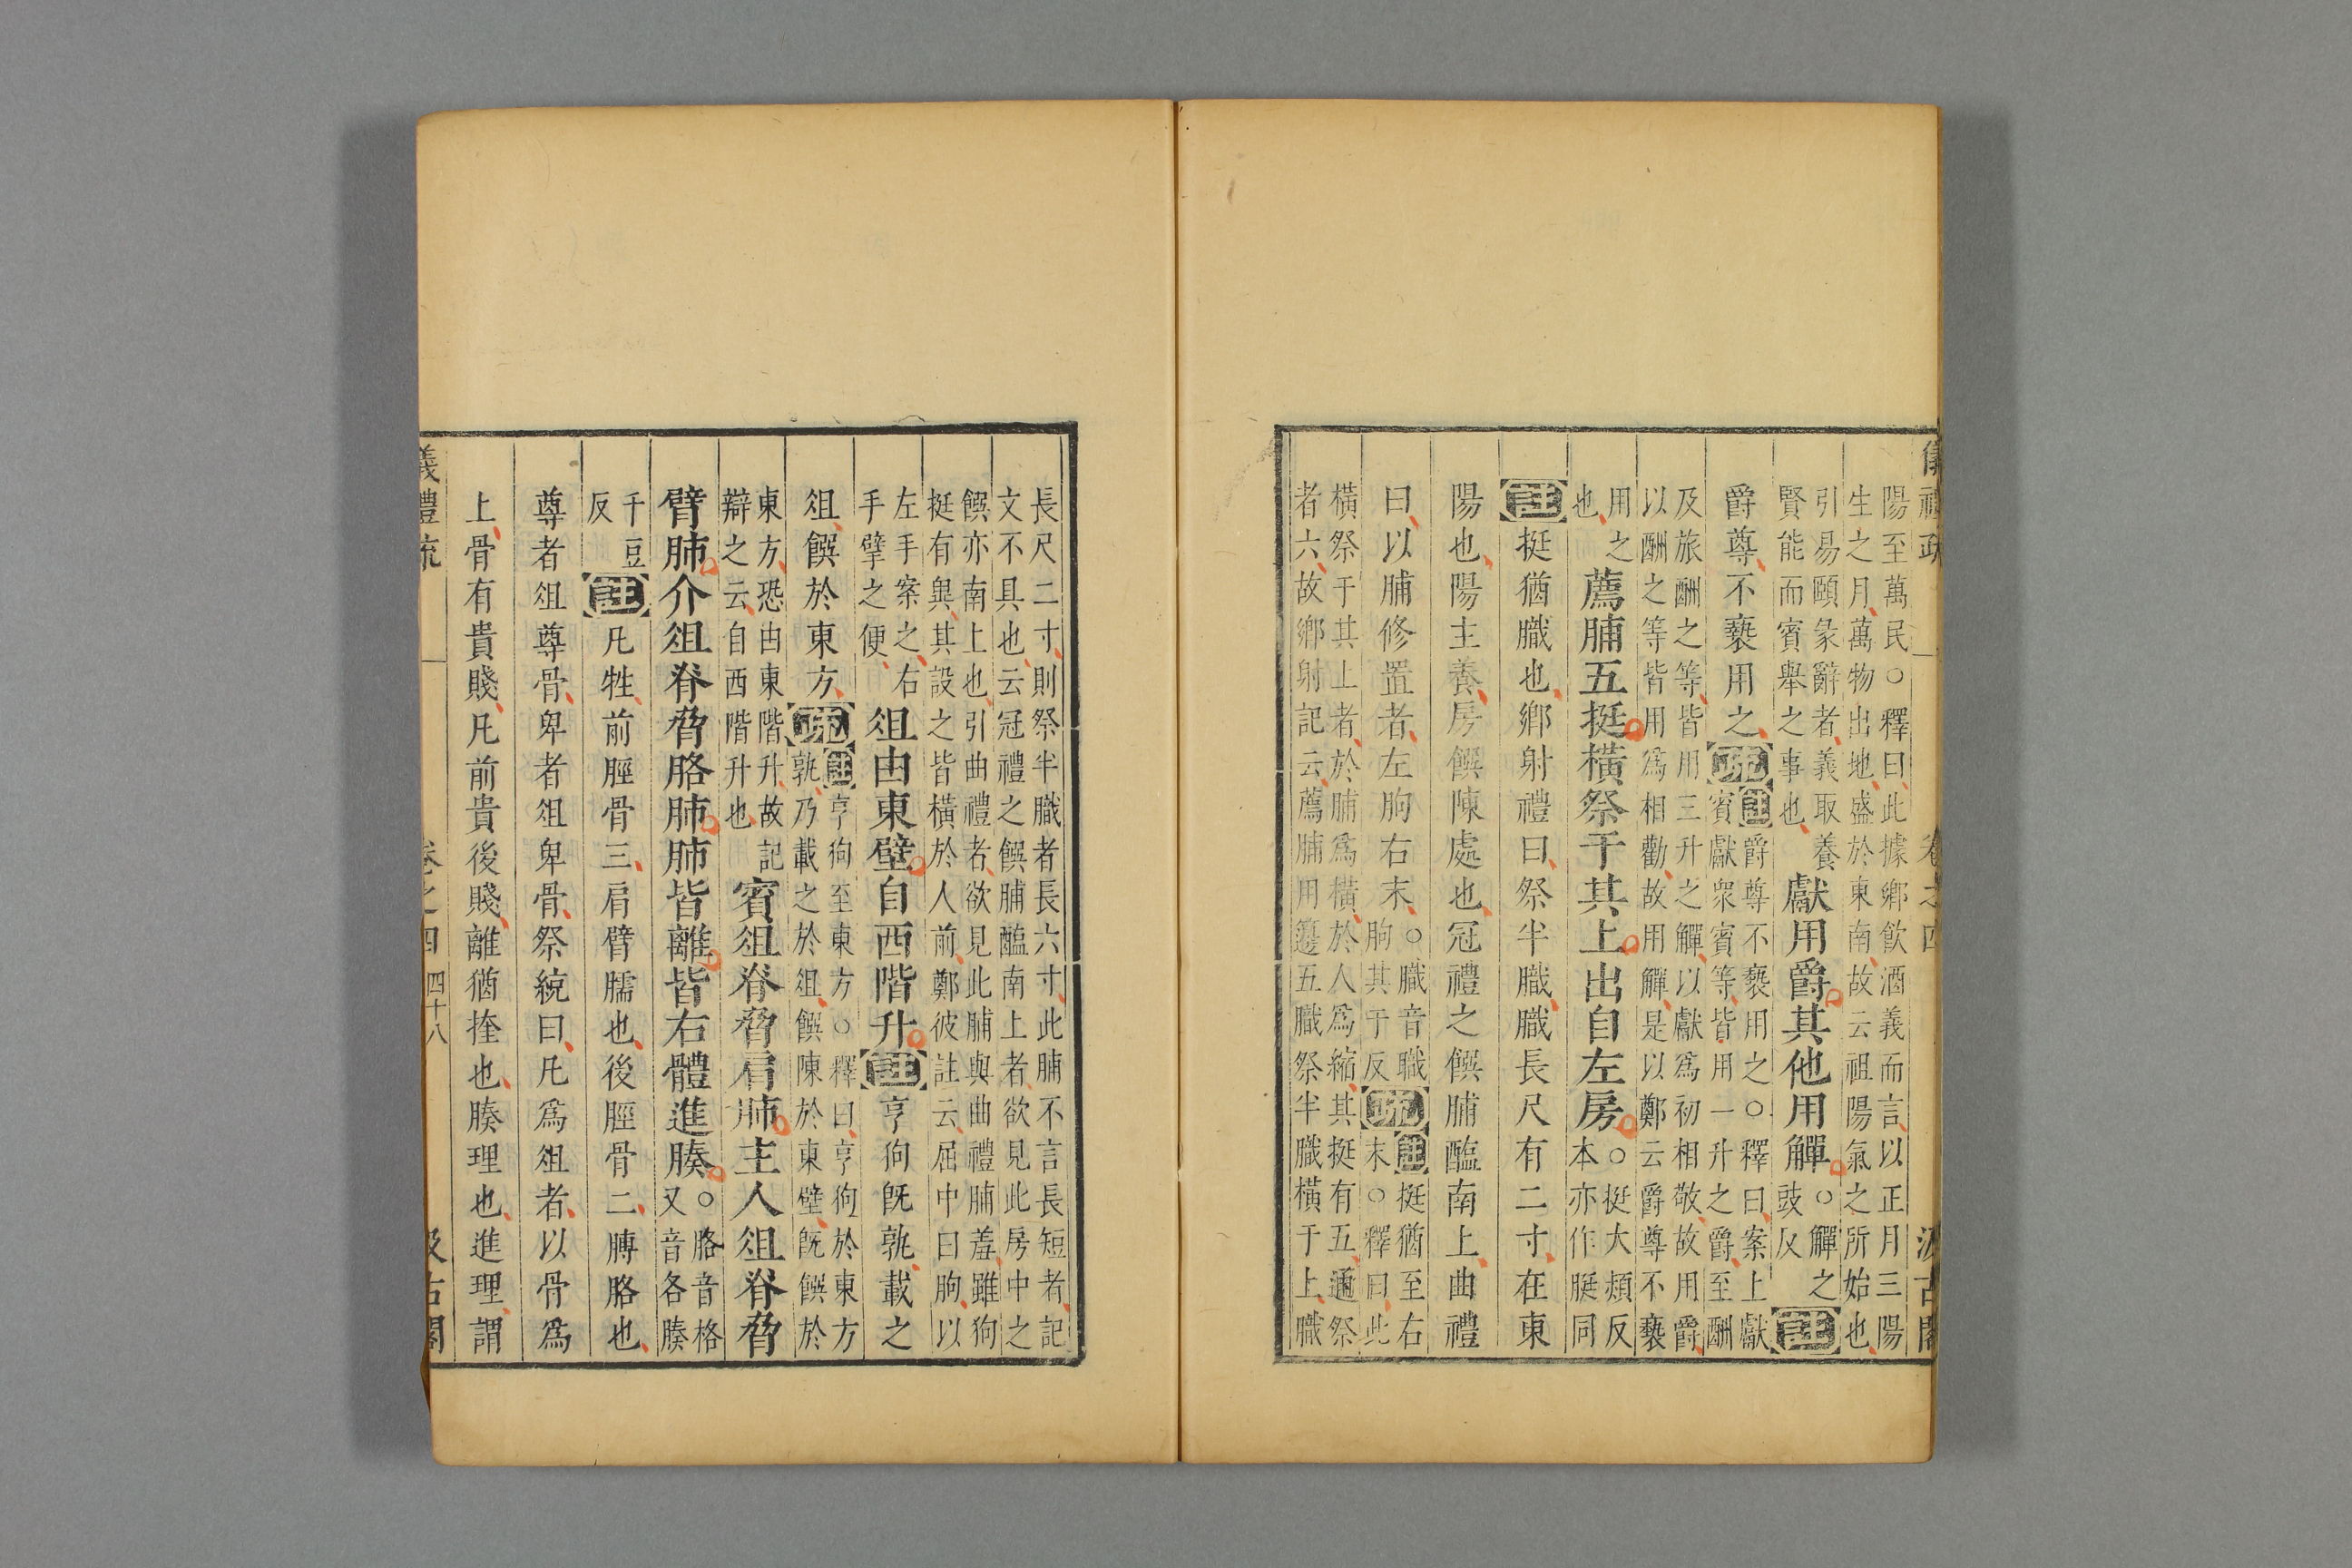 陽至萬民○釋曰此據鄉飲酒義而言以正月三陽
生之月萬物出地盛於東南故云祖陽氣之所始也
引易頤彖辭者義取養
賢能而賓舉之事也
獻用爵其他用觶○觶之
豉反
註
爵尊不褻用之
疏
註爵尊不褻用之○釋曰案上獻
賓獻眾賓等皆用一升之爵至酬
及旅酬之等皆用三升之觶以獻爲初相敬故用爵
以酬之等皆用爲相勸故用觶是以鄭云爵尊不褻
用之
也
薦脯五挺橫祭于其上出自左房○挺大頰反
本亦作脡同
註挺猶膱也鄉射禮曰祭半膱膱長尺有二寸在東
陽也陽主養房饌陳處也冠禮之饌脯醢南上曲禮
曰以脯修置者左朐右末○膱音職
朐其于反
疏
註挺猶至右
末○釋曰此
橫祭于其上者於脯爲橫於人爲縮其挺有五通祭
者六故鄉射記云薦脯用籩五膱祭半膱橫于上膱
儀禮疏 卷之四 汲古閣
長尺二寸則祭半膱者長六寸此脯不言長短者記
文不具也云冠禮之饌脯醢南上者欲見此房中之
饌亦南上也引曲禮者欲見此脯與曲禮脯羞雖狗
挺有異其設之皆橫於人前鄭彼註云屈中曰朐以
左手案之右
手擘之便
俎由東壁自西階升
註亨狗旣孰載之
俎饌於東方
疏
註亨狗至東方○釋曰亨狗於東方
孰乃載之於俎饌陳於東壁旣饌於
東方恐由東階升故記
辯之云自西階升也
賓俎脊脅肩肺主人俎脊脅
臂肺介俎脊脅胳肺肺皆離皆右體進腠○胳音格
又音各腠
千豆
反
註凡牲前脛骨三肩臂臑也後脛骨二膊胳也
尊者俎尊骨卑者俎卑骨祭統曰凡爲俎者以骨爲
上骨有貴賤凡前貴後賤離猶㧗也腠理也進理謂
儀禮疏 卷之四 四十八 汲古閣